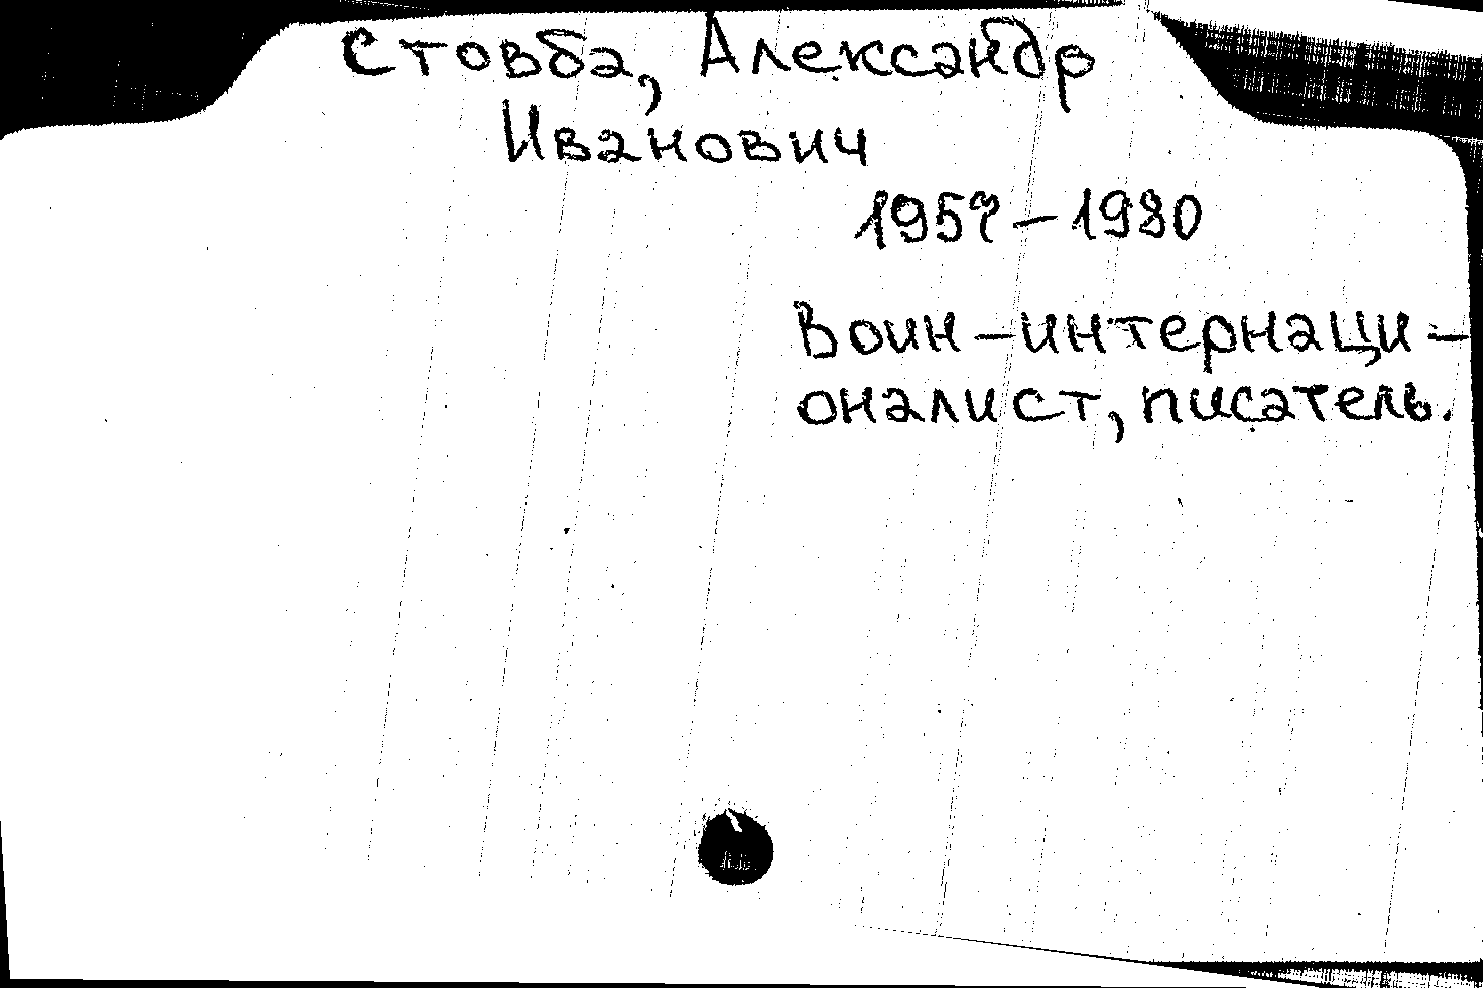 Стовба, Александр
Иванович
1957-1980
Воин-интернаци-
оналист, писатель.